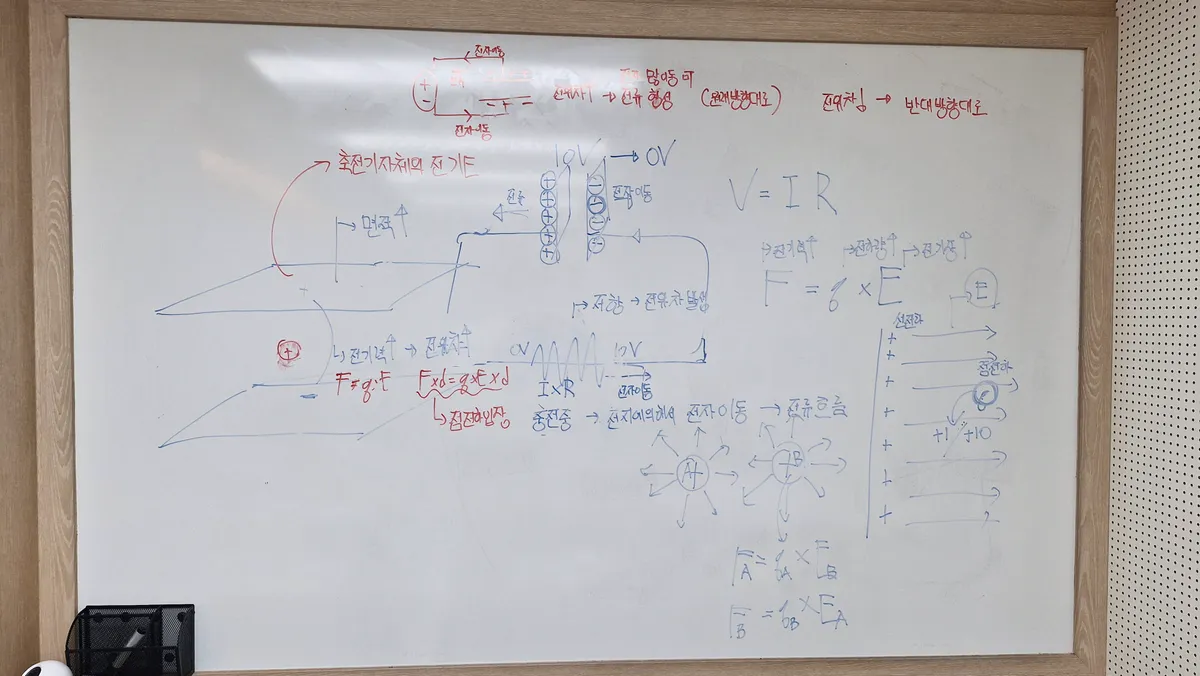 전자이동
+
-
- + =
전자 많이동 며
전위차↑ → 전류 형성 (원래방향대로)
전위차↓ → 반대방향대로
전자이동
축전기자체의 전기E
10V → 0V
전류
전자이동
→ 면적↑
V = I R
→ 전기력↑
→ 전하량↑
→ 전기장↑
F = q × E
E
→ 저항 → 전위차 발생
선전하
점전하
+
↳ 전기력↑ → 전위차↑
0V
10V
F = q·E
F×d = q×E×d
I×R
전자이동
↳ 점전하입장
충전중 → 전지에의해서 전자이동 → 전류흐름
+1 +10
A
B
F_A = q_A × E_B
F_B = q_B × E_A